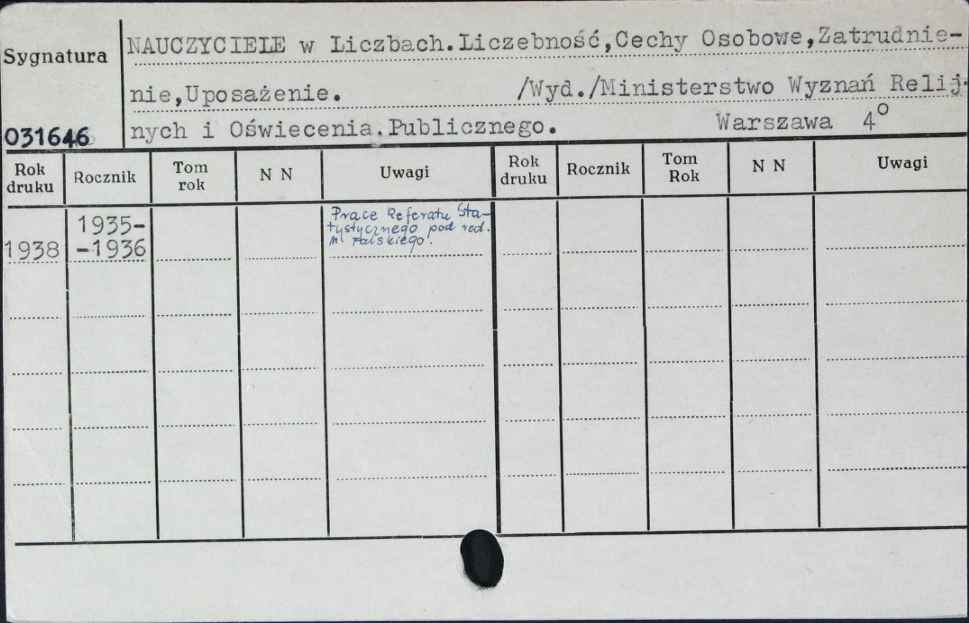 Sygnatura
NAUCZYCIELE w Liczbach.Liczebność,Cechy Osobowe,Zatrudnie-
nie,Uposażenie. /Wyd./Ministerstwo Wyznań Relij-
031646 nych i Oświecenia.Publicznego. Warszawa 4°
Rok druku Rocznik Tom rok N N Uwagi Rok druku Rocznik Tom Rok N N Uwagi
1935-
1938 -1936
Prace Referatu Sta-
tystycznego pod red.
M.